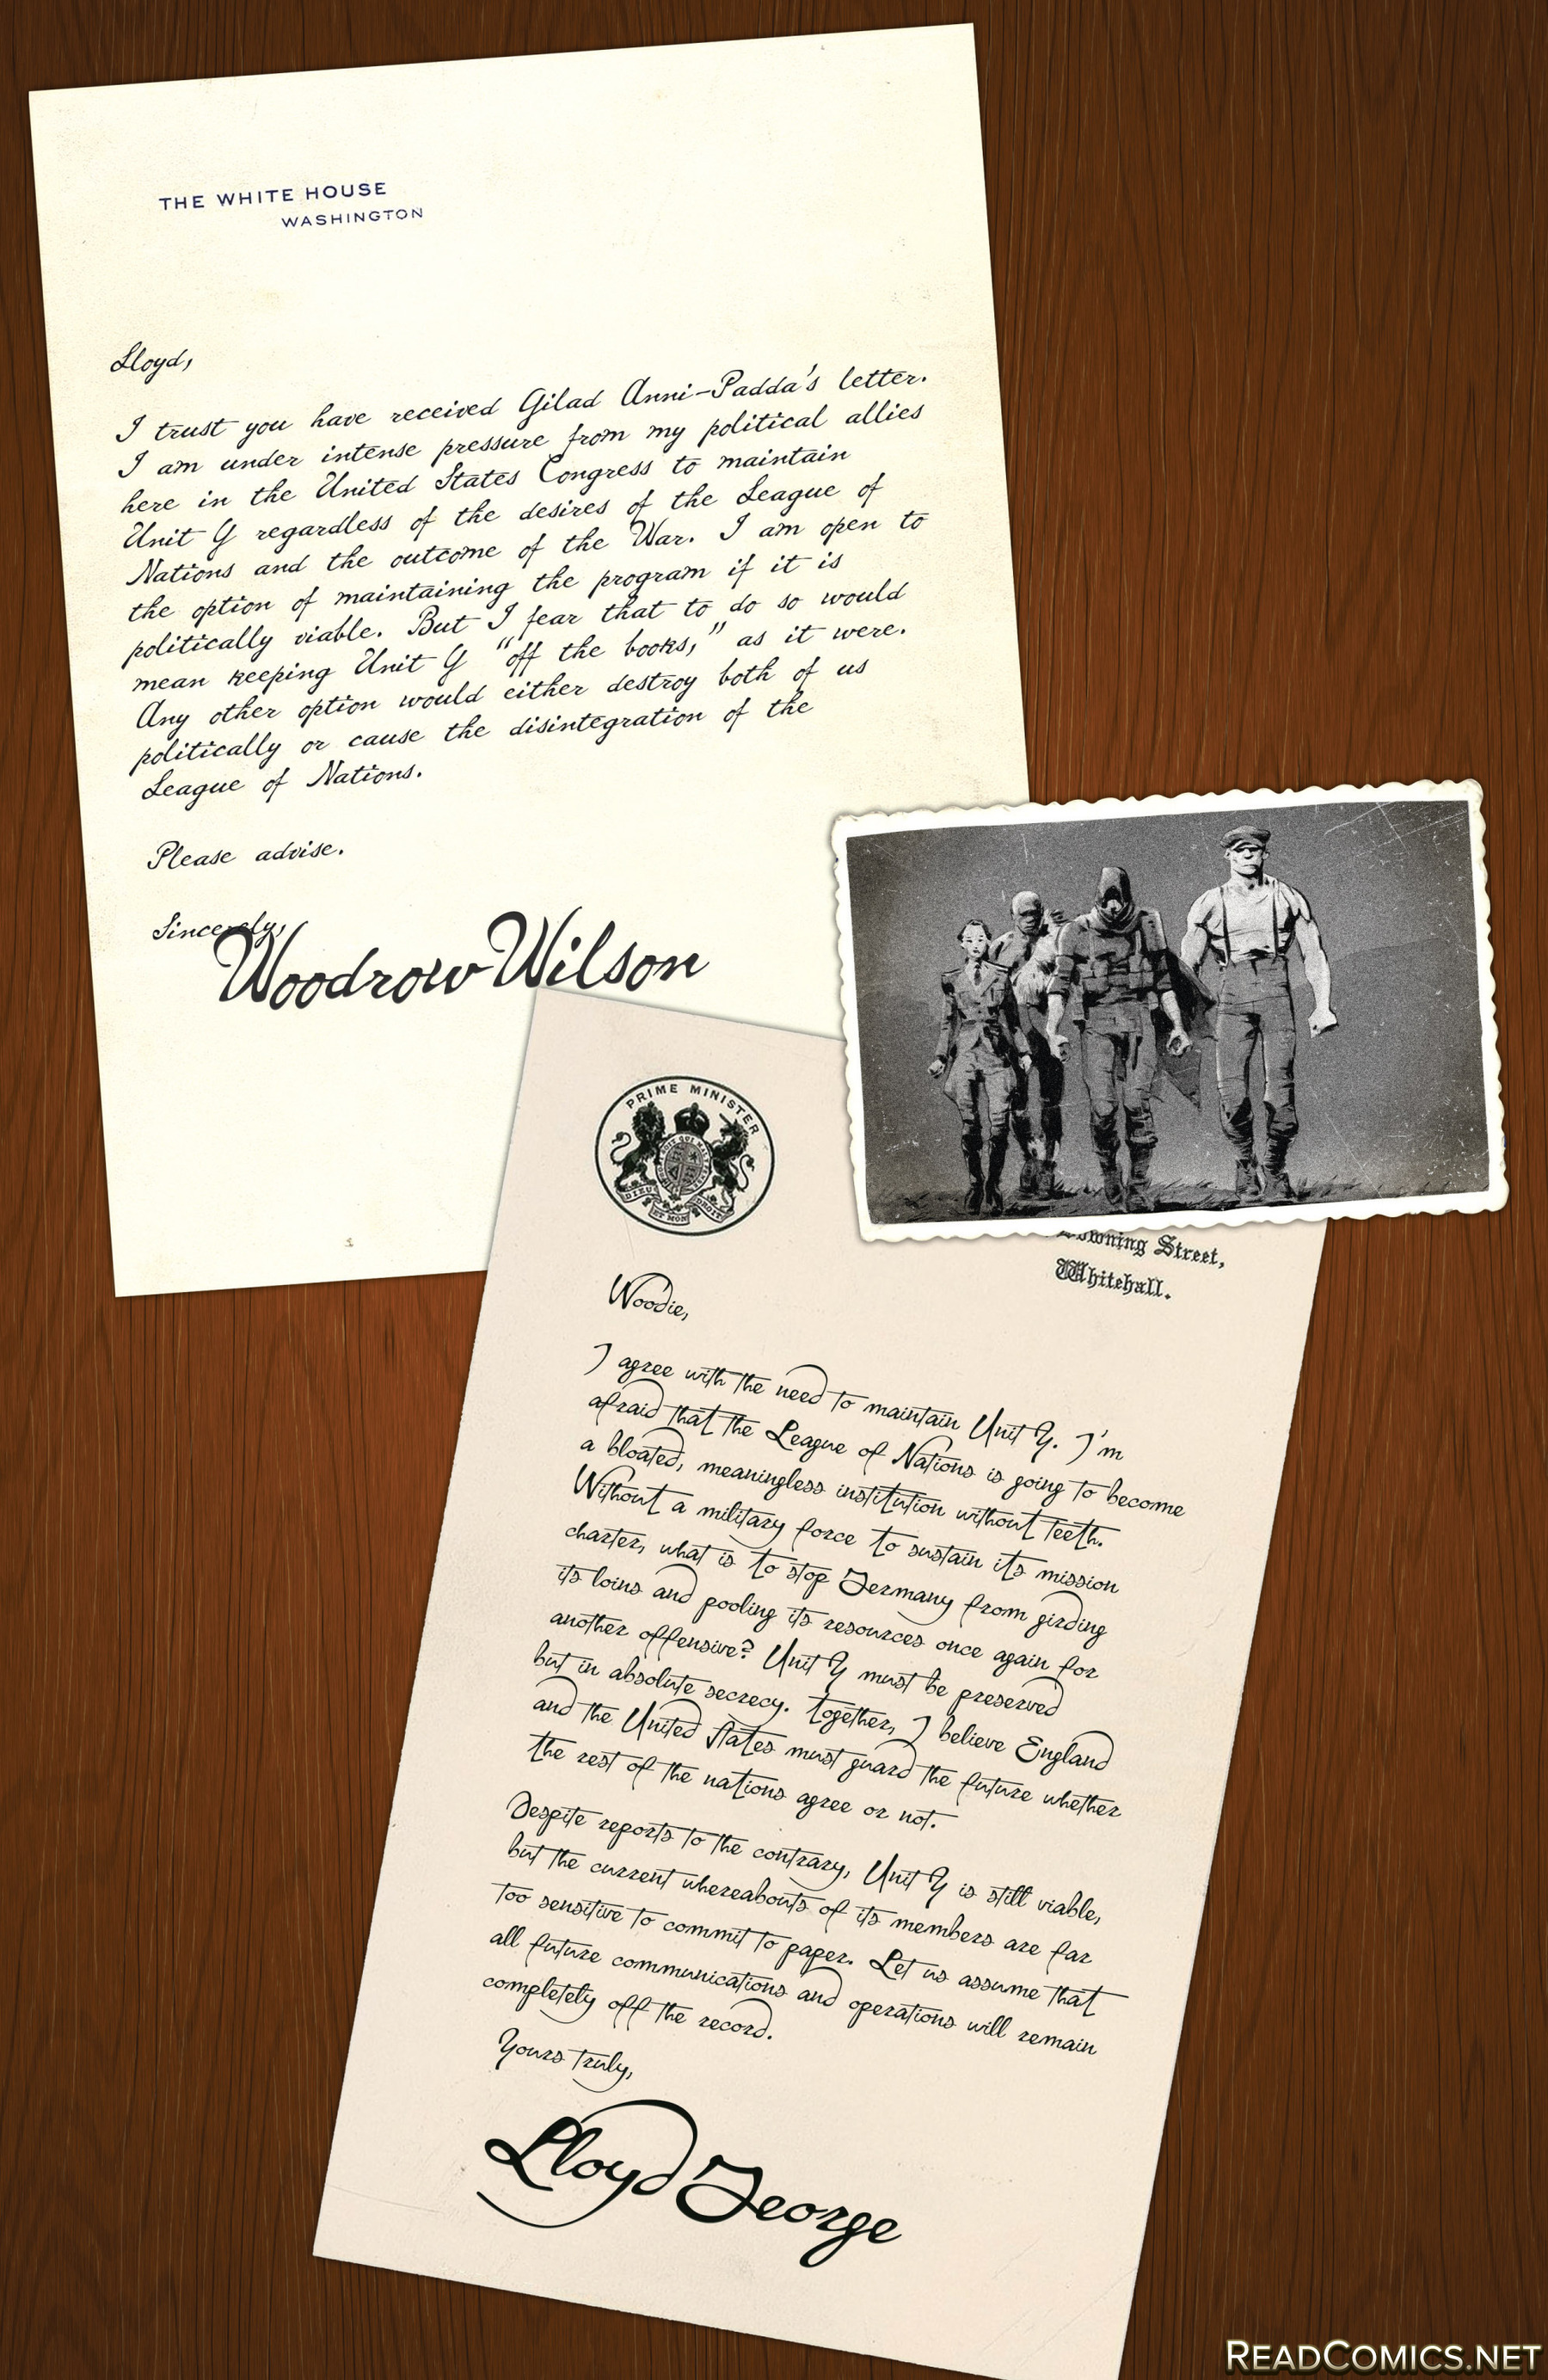 THE WHITE HOUSE
WASHINGTON
Lloyd,
I trust you have received Gilad Anni-Padda's letter.
I am under intense pressure from my political allies
here in the United States Congress to maintain
Unit Y regardless of the desires of the League of
Nations and the outcome of the War. I am open to
the option of maintaining the program if it is
politically viable. But I fear that to do so would
mean keeping Unit Y "off the books," as it were.
Any other option would either destroy both of us
politically or cause the disintegration of the
League of Nations.
Please advise.
Sincerely,
Woodrow Wilson
PRIME MINISTER
DIEU
ET MON
DROIT
Downing Street,
Whitehall.
Woodie,
I agree with the need to maintain Unit Y. I'm
afraid that the League of Nations is going to become
a bloated, meaningless institution without teeth.
Without a military force to sustain its mission
charter, what is to stop Germany from girding
its loins and pooling its resources once again for
another offensive? Unit Y must be preserved
but in absolute secrecy. Together, I believe England
and the United States must guard the future whether
the rest of the nations agree or not.
Despite reports to the contrary, Unit Y is still viable,
but the current whereabouts of its members are far
too sensitive to commit to paper. Let us assume that
all future communications and operations will remain
completely off the record.
Yours truly,
Lloyd George
READCOMICS.NET